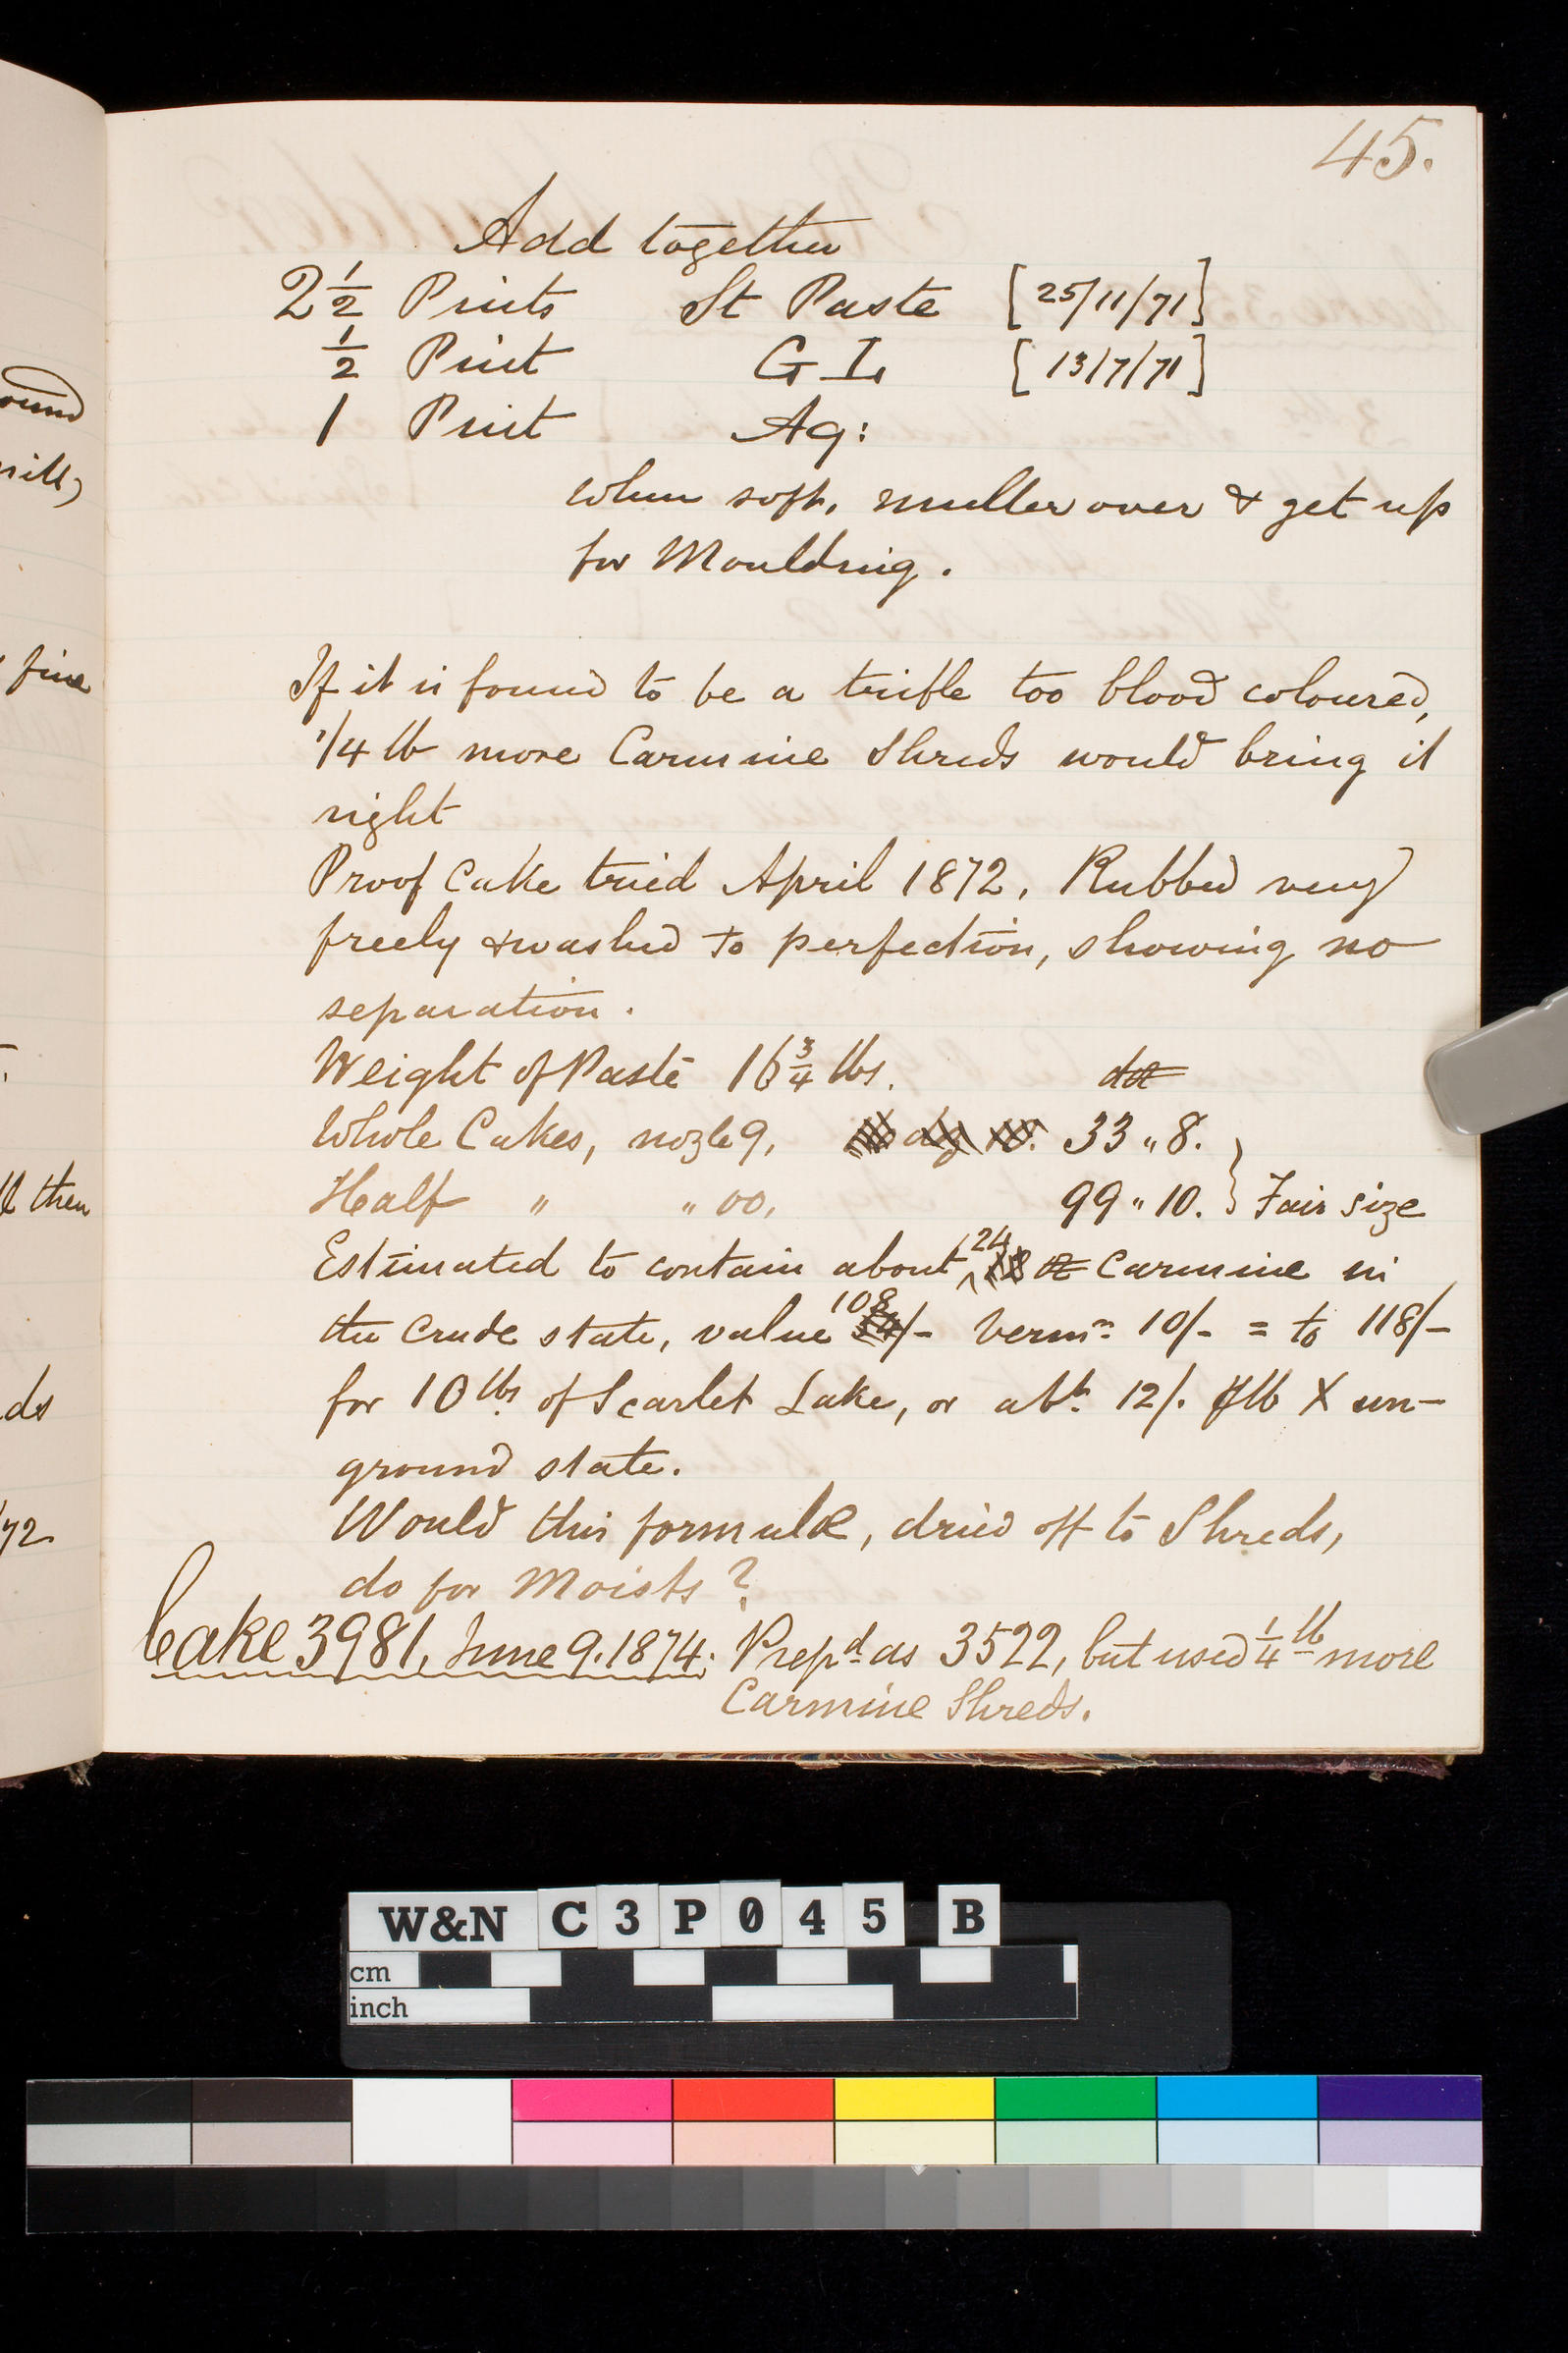 45.
Add together
2 1/2 Pints St Paste [25/11/71]
1/2 Pint G I. [13/7/71]
1 Pint Aq:
When soft, muller over & get up
for Moulding.
If it is found to be a trifle too blood coloured,
1/4 lb more Carmine Shreds would bring it
right
Proof Cake tried April 1872. Rubbed very
freely & washed to perfection, showing no
separation.
Weight of Paste 16 3/4 lbs.
Whole Cakes, nozle 9, 33 " 8.
Half " " 00, 99 " 10. } Fair size
Estimated to contain about 24 Carmine in
the crude state, value 108/- Vermn 10/- = to 118/-
for 10 lbs of Scarlet Lake, or abt. 12/. lb X un-
ground state.
Would this formulæ, dried off to Shreds,
do for Moists?
Cake 3981, June 9. 1874: Prepd as 3522, but used 1/4 lb more
Carmine Shreds.
ound
mill,
fine
ll then
ds
/72
W&N C3P045 B
cm
inch